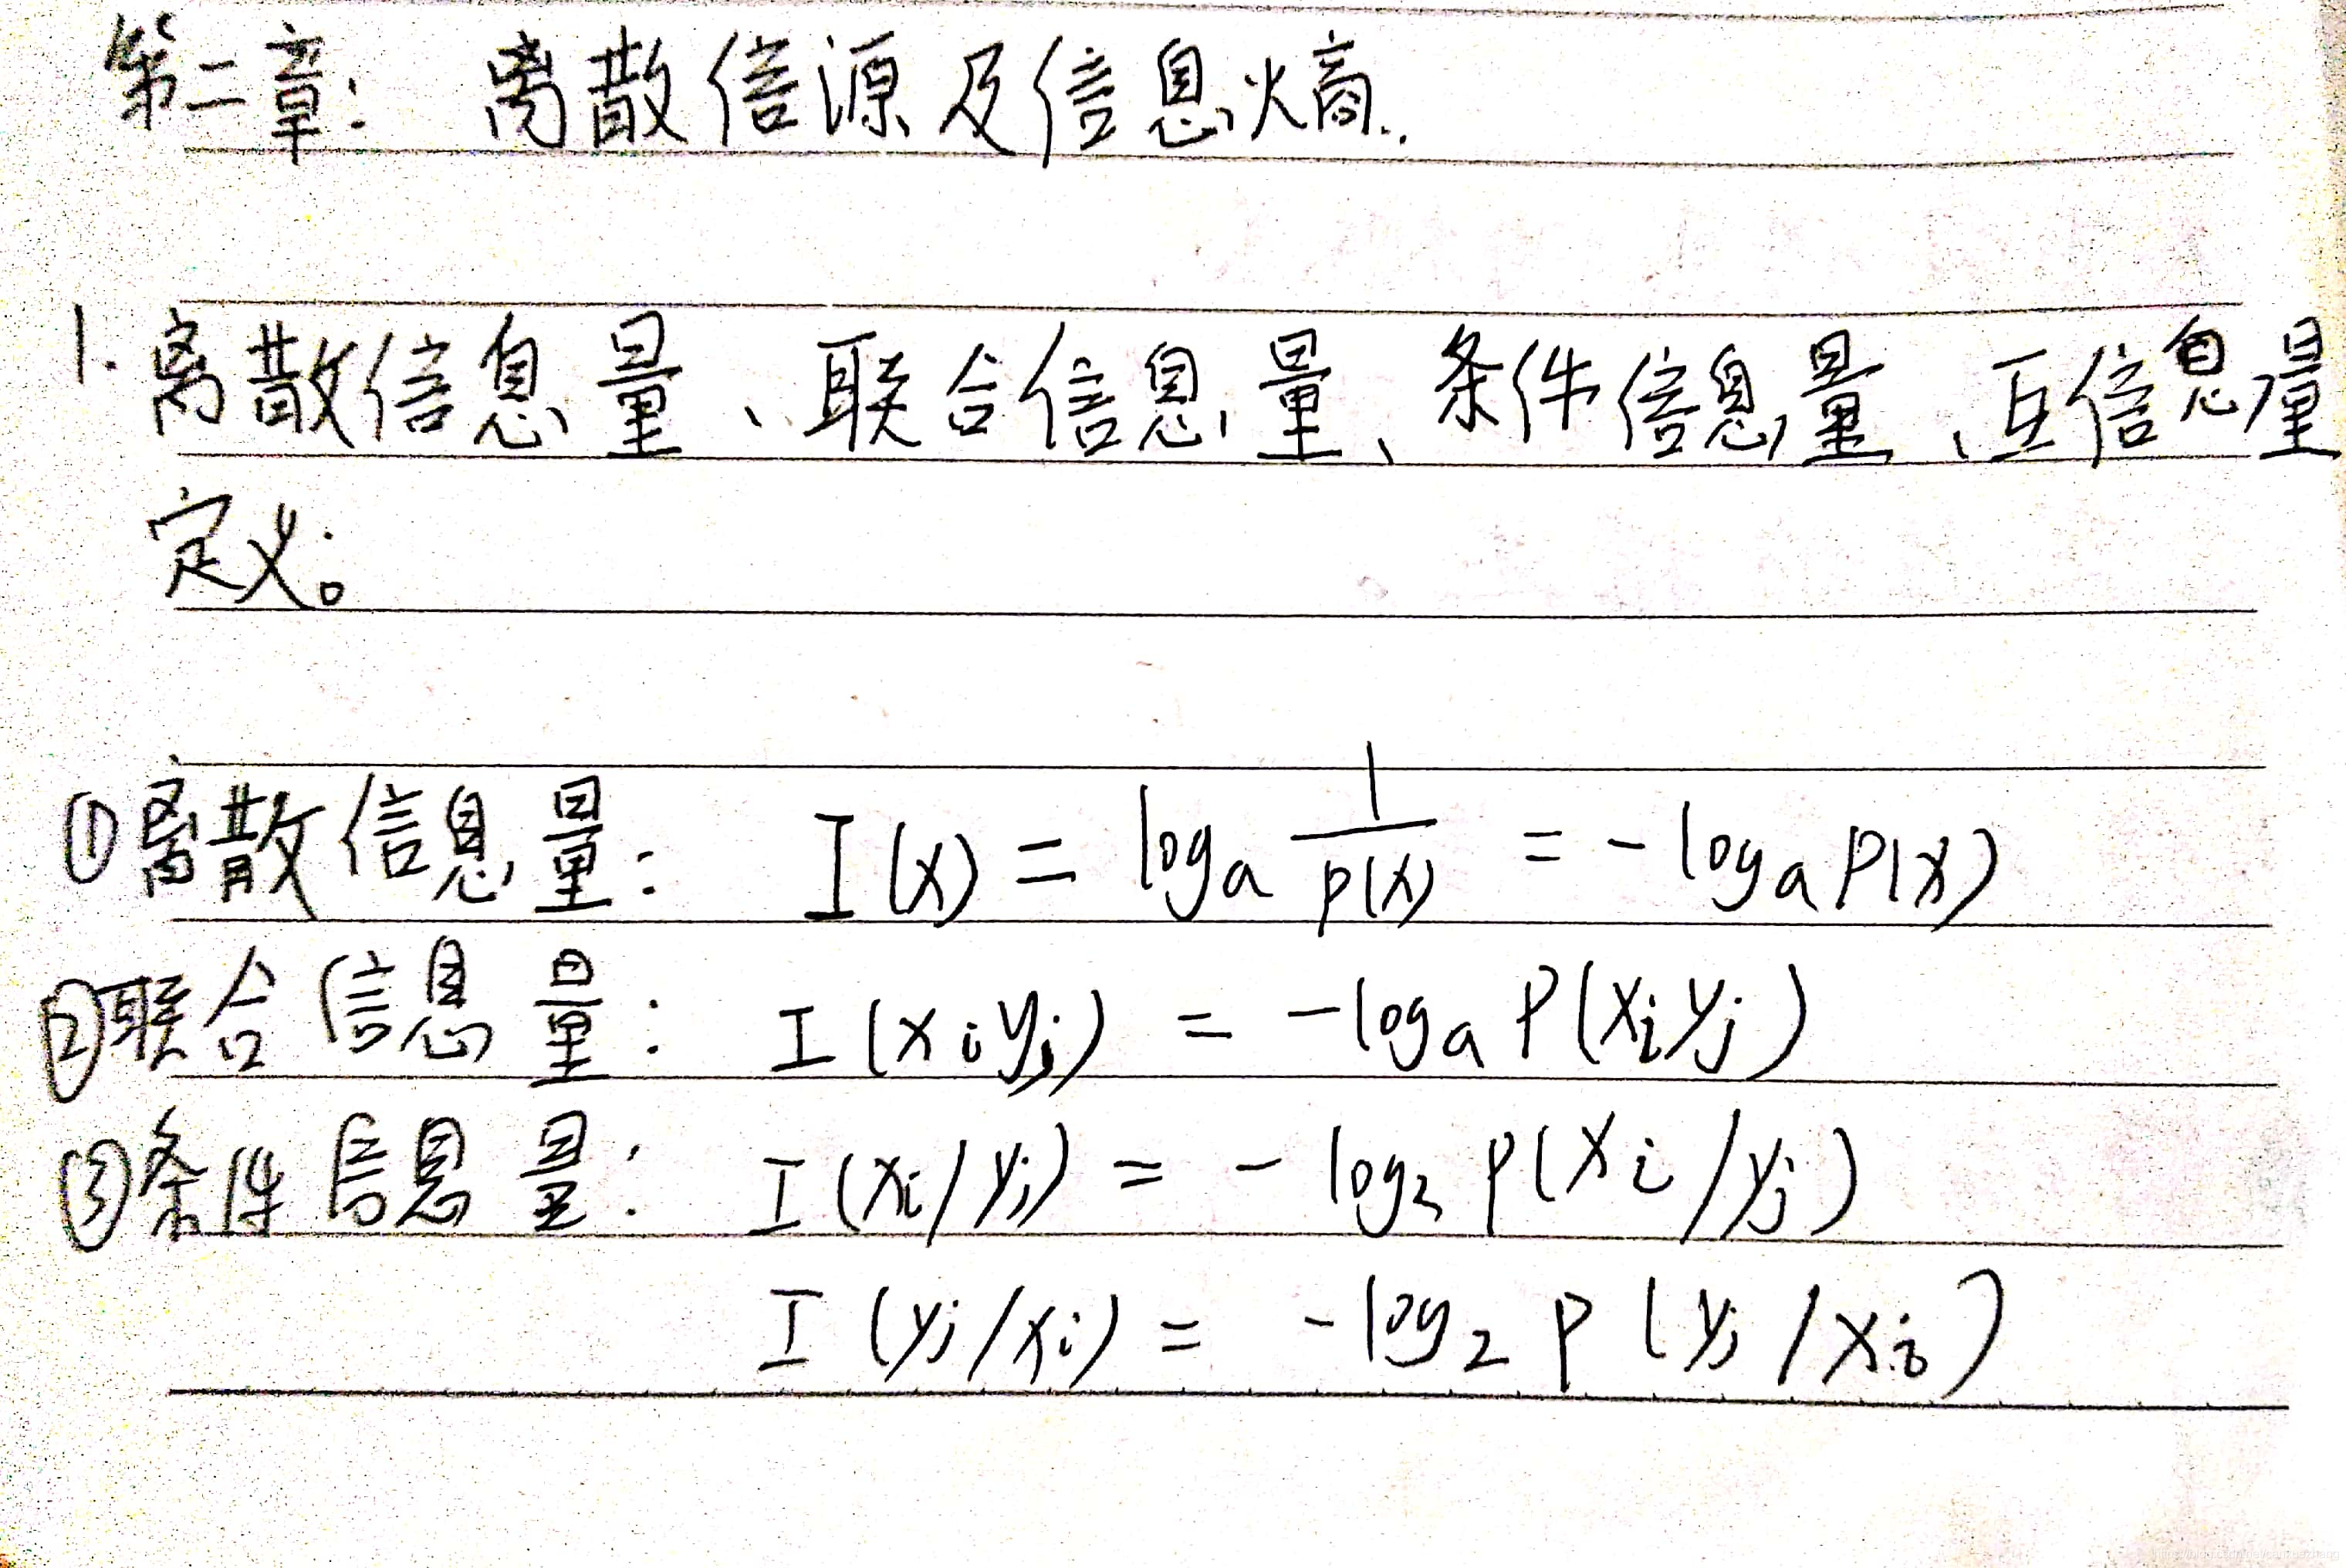 第二章: 离散信源及信息熵.
1. 离散信息量、联合信息量、条件信息量、互信息量
定义。
①离散信息量: I(x) = logₐ 1/p(x) = -logₐ P(x)
②联合信息量: I(xᵢyⱼ) = -logₐ P(xᵢyⱼ)
③条件信息量: I(xᵢ/yⱼ) = - log₂ P(xᵢ/yⱼ)
I(yⱼ/xᵢ) = -log₂ P(yⱼ/xᵢ)